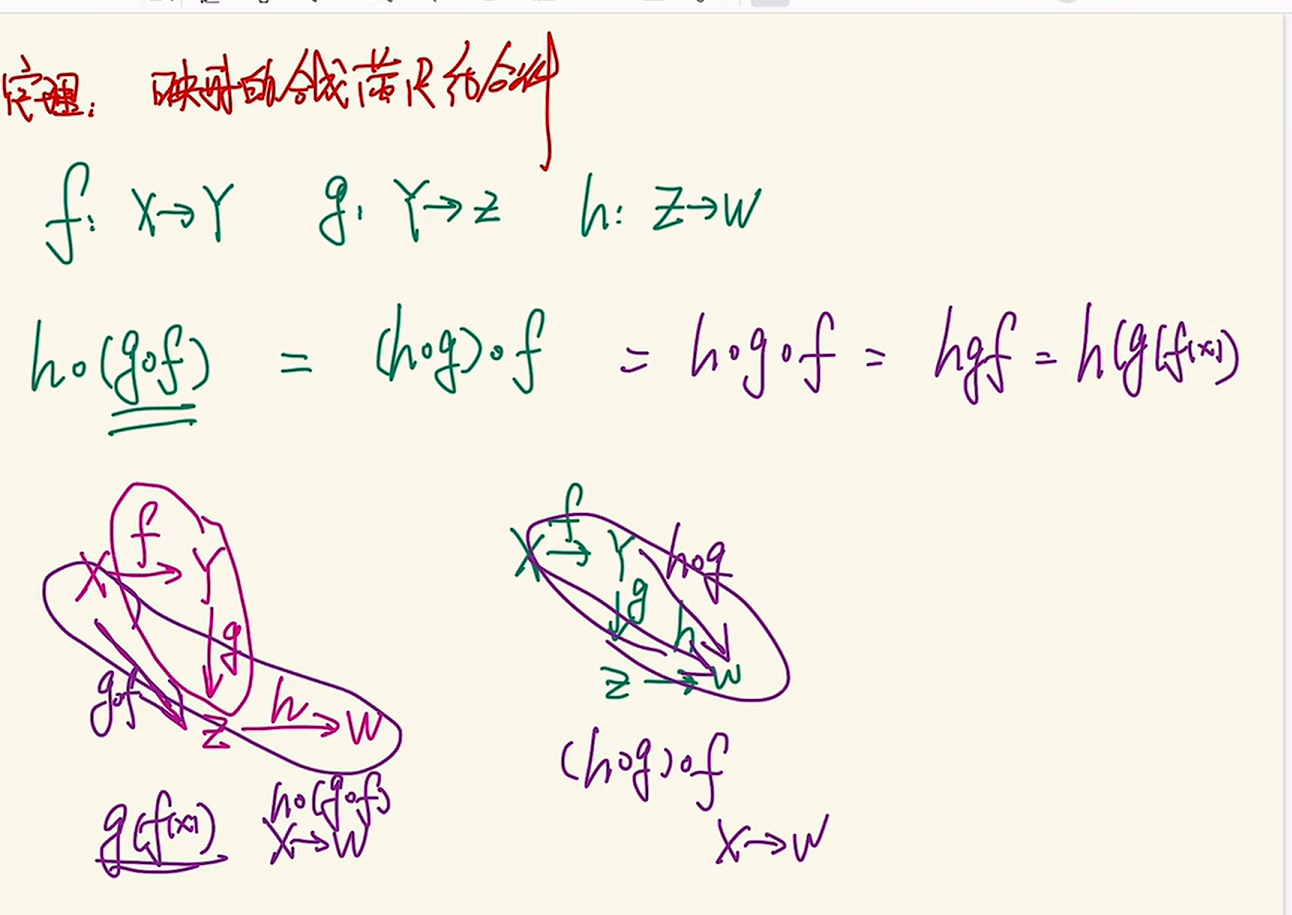 定理: 映射的合成满足结合律
f: X→Y g: Y→Z h: Z→W
h∘(g∘f) = (h∘g)∘f = h∘g∘f = hgf = h(g(f(x))
f
X → Y
g
g∘f
Z h → W
g(f(x)) h∘(g∘f)
X→W
f
X → Y h∘g
g
h
Z → W
(h∘g)∘f
X→W